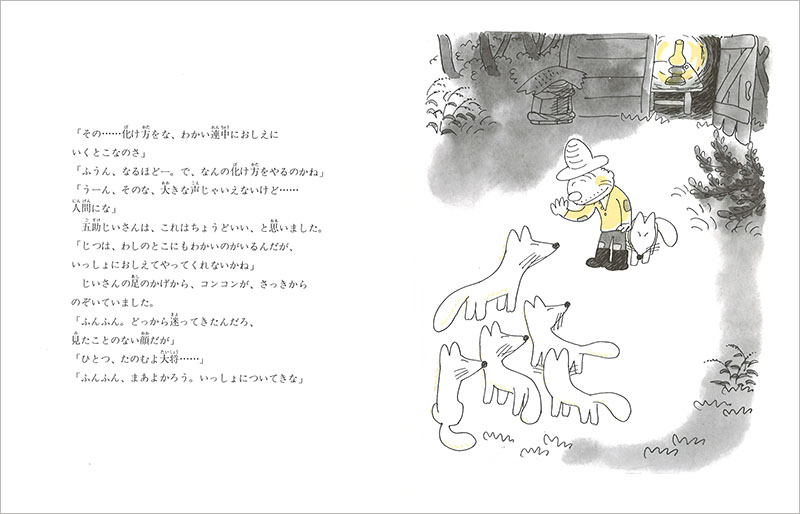 「その……化け方をな、わかい連中におしえに
いくとこなのさ」
「ふうん、なるほどー。で、なんの化け方をやるのかね」
「うーん、そのな、大きな声じゃいえないけど……
人間にな」
五助じいさんは、これはちょうどいい、と思いました。
「じつは、わしのとこにもわかいのがいるんだが、
いっしょにおしえてやってくれないかね」
じいさんの足のかげから、コンコンが、さっきから
のぞいていました。
「ふんふん。どっから迷ってきたんだろ、
見たことのない顔だが」
「ひとつ、たのむよ大将……」
「ふんふん、まあよかろう。いっしょについてきな」